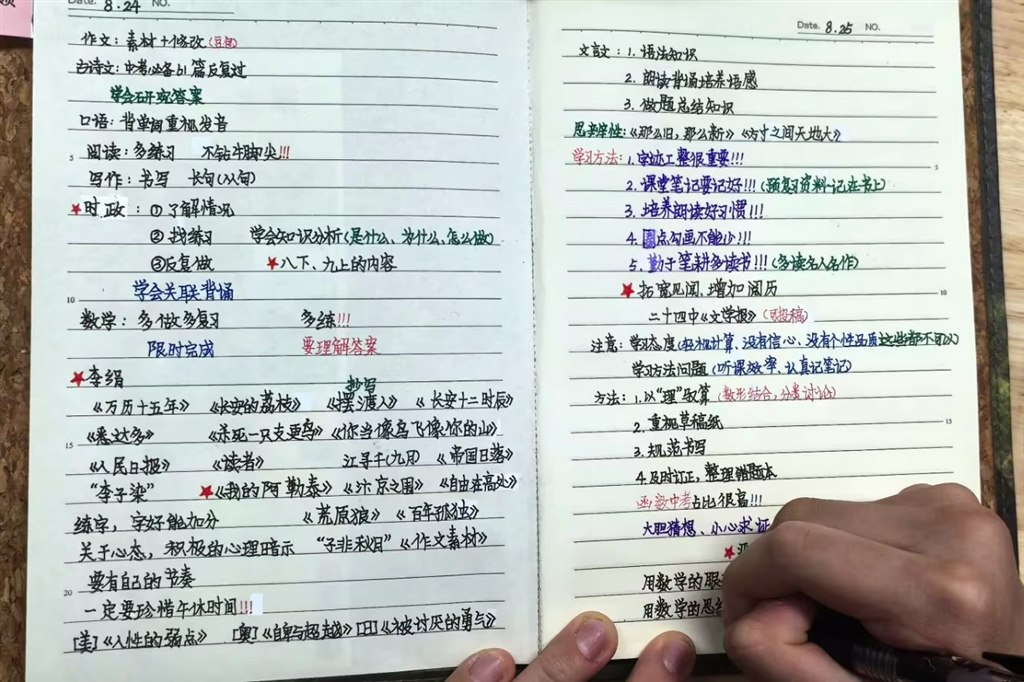 Date. 8.24 NO.
作文：素材+修改(豆包)
古诗文：中考必备61篇反复过
学会研究答案
口语：背单词重视发音
5 阅读：多练习 不钻牛脚尖!!!
写作：书写 长句(从句)
★时政：①了解情况
②找练习 学会知识分析(是什么、为什么、怎么做)
③反复做 ★八下、九上的内容
10 学会关联背诵
数学：多做多复习 多练!!!
限时完成 要理解答案
★李绢
抄写
《万历十五年》 《长安的荔枝》 《摆渡人》 《长安十二时辰》
15 《悉达多》 《杀死一只支更鸟》《你当像鸟飞像你的山》
《人民日报》 《读者》 江寻千(九月) 《帝国日落》
“李子柒” ★《我的阿勒泰》《汴京之围》《自由在高处》
练字，字好能加分 《荒原狼》《百年孤独》
关于心态，积极的心理暗示 “子非秋目”《作文素材》
20 要有自己的节奏
一定要珍惜午休时间!!!
[美]《人性的弱点》 [奥]《自卑与超越》[日]《被讨厌的勇气》
Date. 8.25 NO.
文言文：1. 语法知识
2. 朗读背诵培养语感
3. 做题总结知识
思辨性：《那么旧，那么新》《方寸之间天地大》
学习方法：1. 字迹工整很重要!!! 5
2. 课堂笔记要记好!!!(预复习资料-记在书上)
3. 培养朗读好习惯!!!
4. 圈点勾画不能少!!!
5. 勤于笔耕多读书!!!(多读名人名作)
★拓宽见闻、增加阅历 10
二十四中《文学报》(可投稿)
注意：学习态度(轻视计算、没有信心、没有个性品质这些都不可以)
学习方法问题(听课效率、认真记笔记)
方法：1. 以“理”驭算(数形结合，分类讨论)
2. 重视草稿纸 15
3. 规范书写
4. 及时订正，整理错题本
函数中考占比很高!!!
大胆猜想、小心求证
★
用数学的
用数学的思